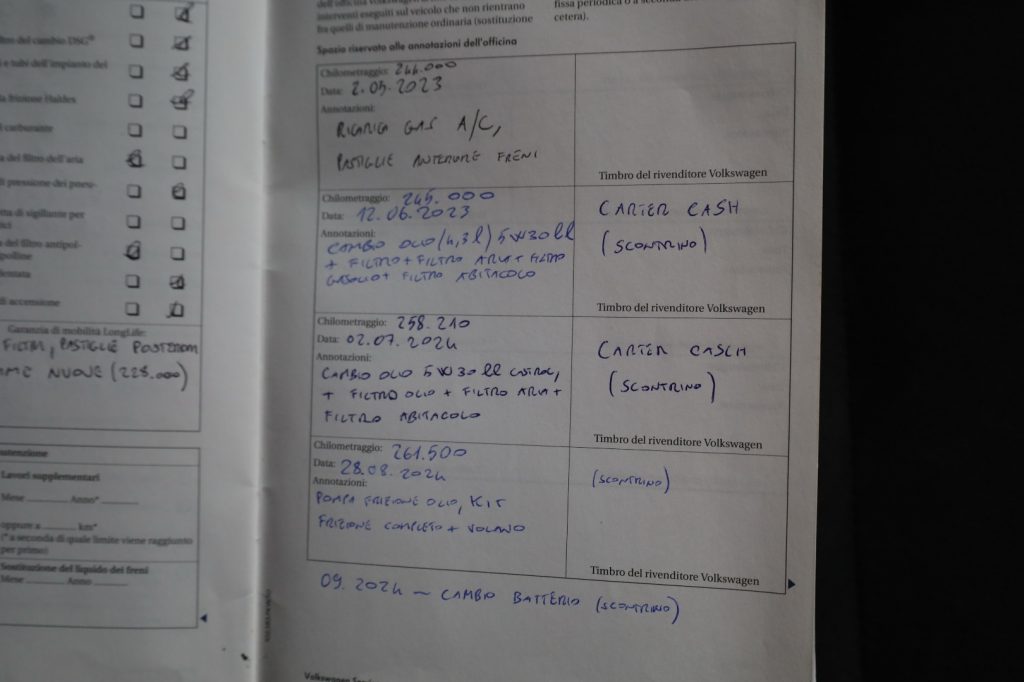 tro del cambio DSG®
i e tubi dell'impianto dei
la frizione Haldex
l carburante
a del filtro dell'aria
di pressione dei pneu-
tta di vigilante per
ici
a del filtro antipol-
polline
dentata
di accensione
Garanzia di mobilità LongLife:
FILTRI, PASTIGLIE POSTERIORI
NUOVE (228.000)
utenzione
Lavori supplementari
Mese Anno*
oppure a km*
(* a seconda di quale limite viene raggiunto
per primo)
Sostituzione del liquido dei freni
Mese Anno
interventi eseguiti sul veicolo che non rientrano
fra quelli di manutenzione ordinaria (sostituzione
fissa periodica o a seconda
cetera).
Spazio riservato alle annotazioni dell'officina
Chilometraggio: 244.000
Data: 2.05.2023
Annotazioni:
RICARICA GAS A/C,
PASTIGLIE ANTERIORE FRENI
Timbro del rivenditore Volkswagen
Chilometraggio: 245.000
Data: 12.06.2023
Annotazioni:
CAMBIO OLIO (4,3l) 5W30 ll
+ FILTRO + FILTRO ARIA + FILTRO
GASOLIO + FILTRO ABITACOLO
CARTER CASH
(SCONTRINO)
Timbro del rivenditore Volkswagen
Chilometraggio: 258.210
Data: 02.07.2024
Annotazioni:
CAMBIO OLIO 5W30 ll CASTROL,
+ FILTRO OLIO + FILTRO ARIA +
FILTRO ABITACOLO
CARTER CASCH
(SCONTRINO)
Timbro del rivenditore Volkswagen
Chilometraggio: 261.500
Data: 28.08.2024
Annotazioni:
POMPA FRIZIONE OLIO, KIT
FRIZIONE COMPLETO + VOLANO
(SCONTRINO)
Timbro del rivenditore Volkswagen
09.2024 – CAMBIO BATTERIO (SCONTRINO)